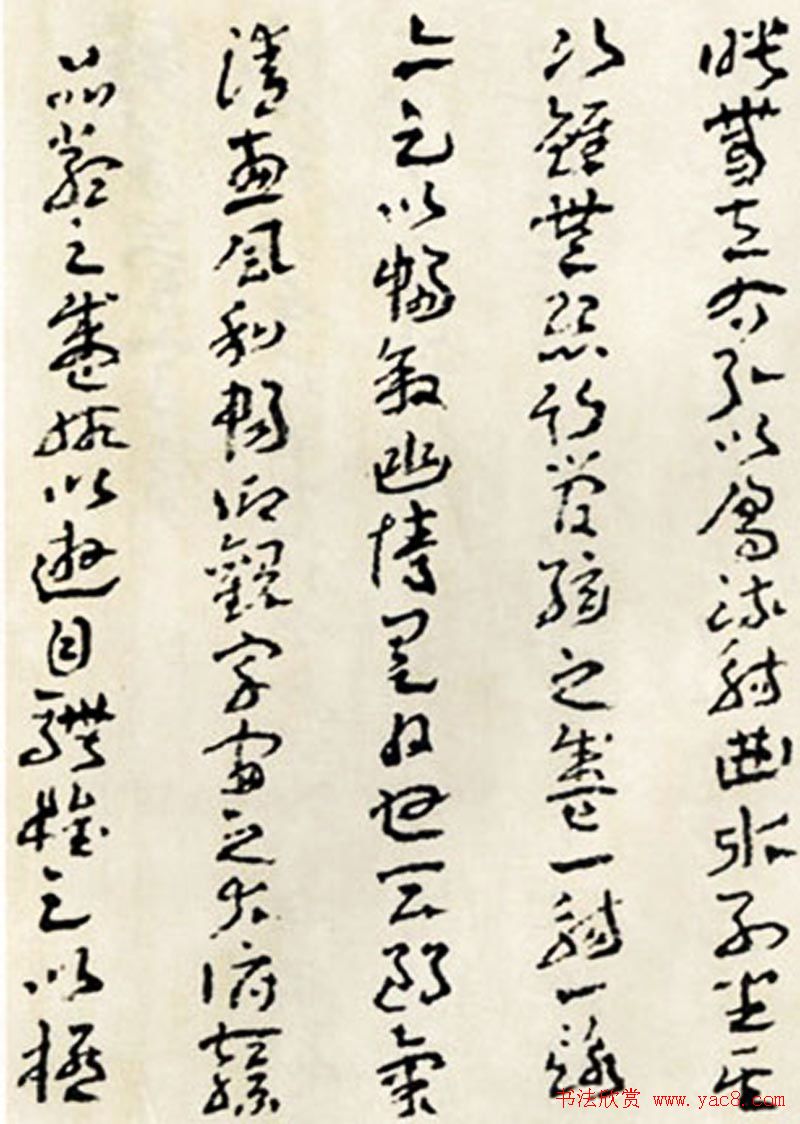 映帶左右引以為流觴曲水列坐其
次雖無絲竹管絃之盛一觴一詠
亦足以暢敘幽情是日也天朗氣
清惠風和暢仰觀宇宙之大俯察
品類之盛所以遊目騁懷足以極
书法欣赏 www.yac8.com